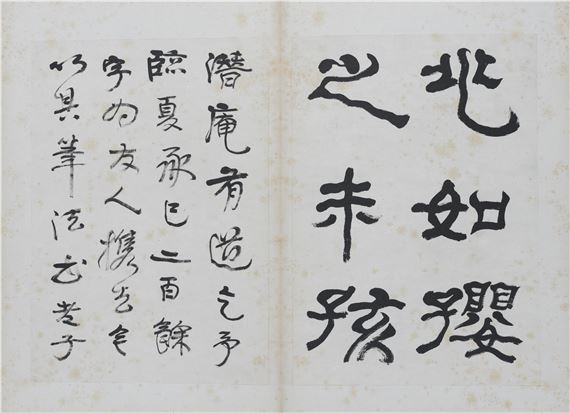 兆如孾
之未孩
潛庵有道乞予
臨夏承已二百餘
字为友人攜去
以其筆法書老子